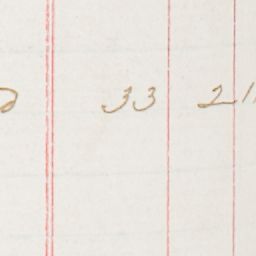 33 21